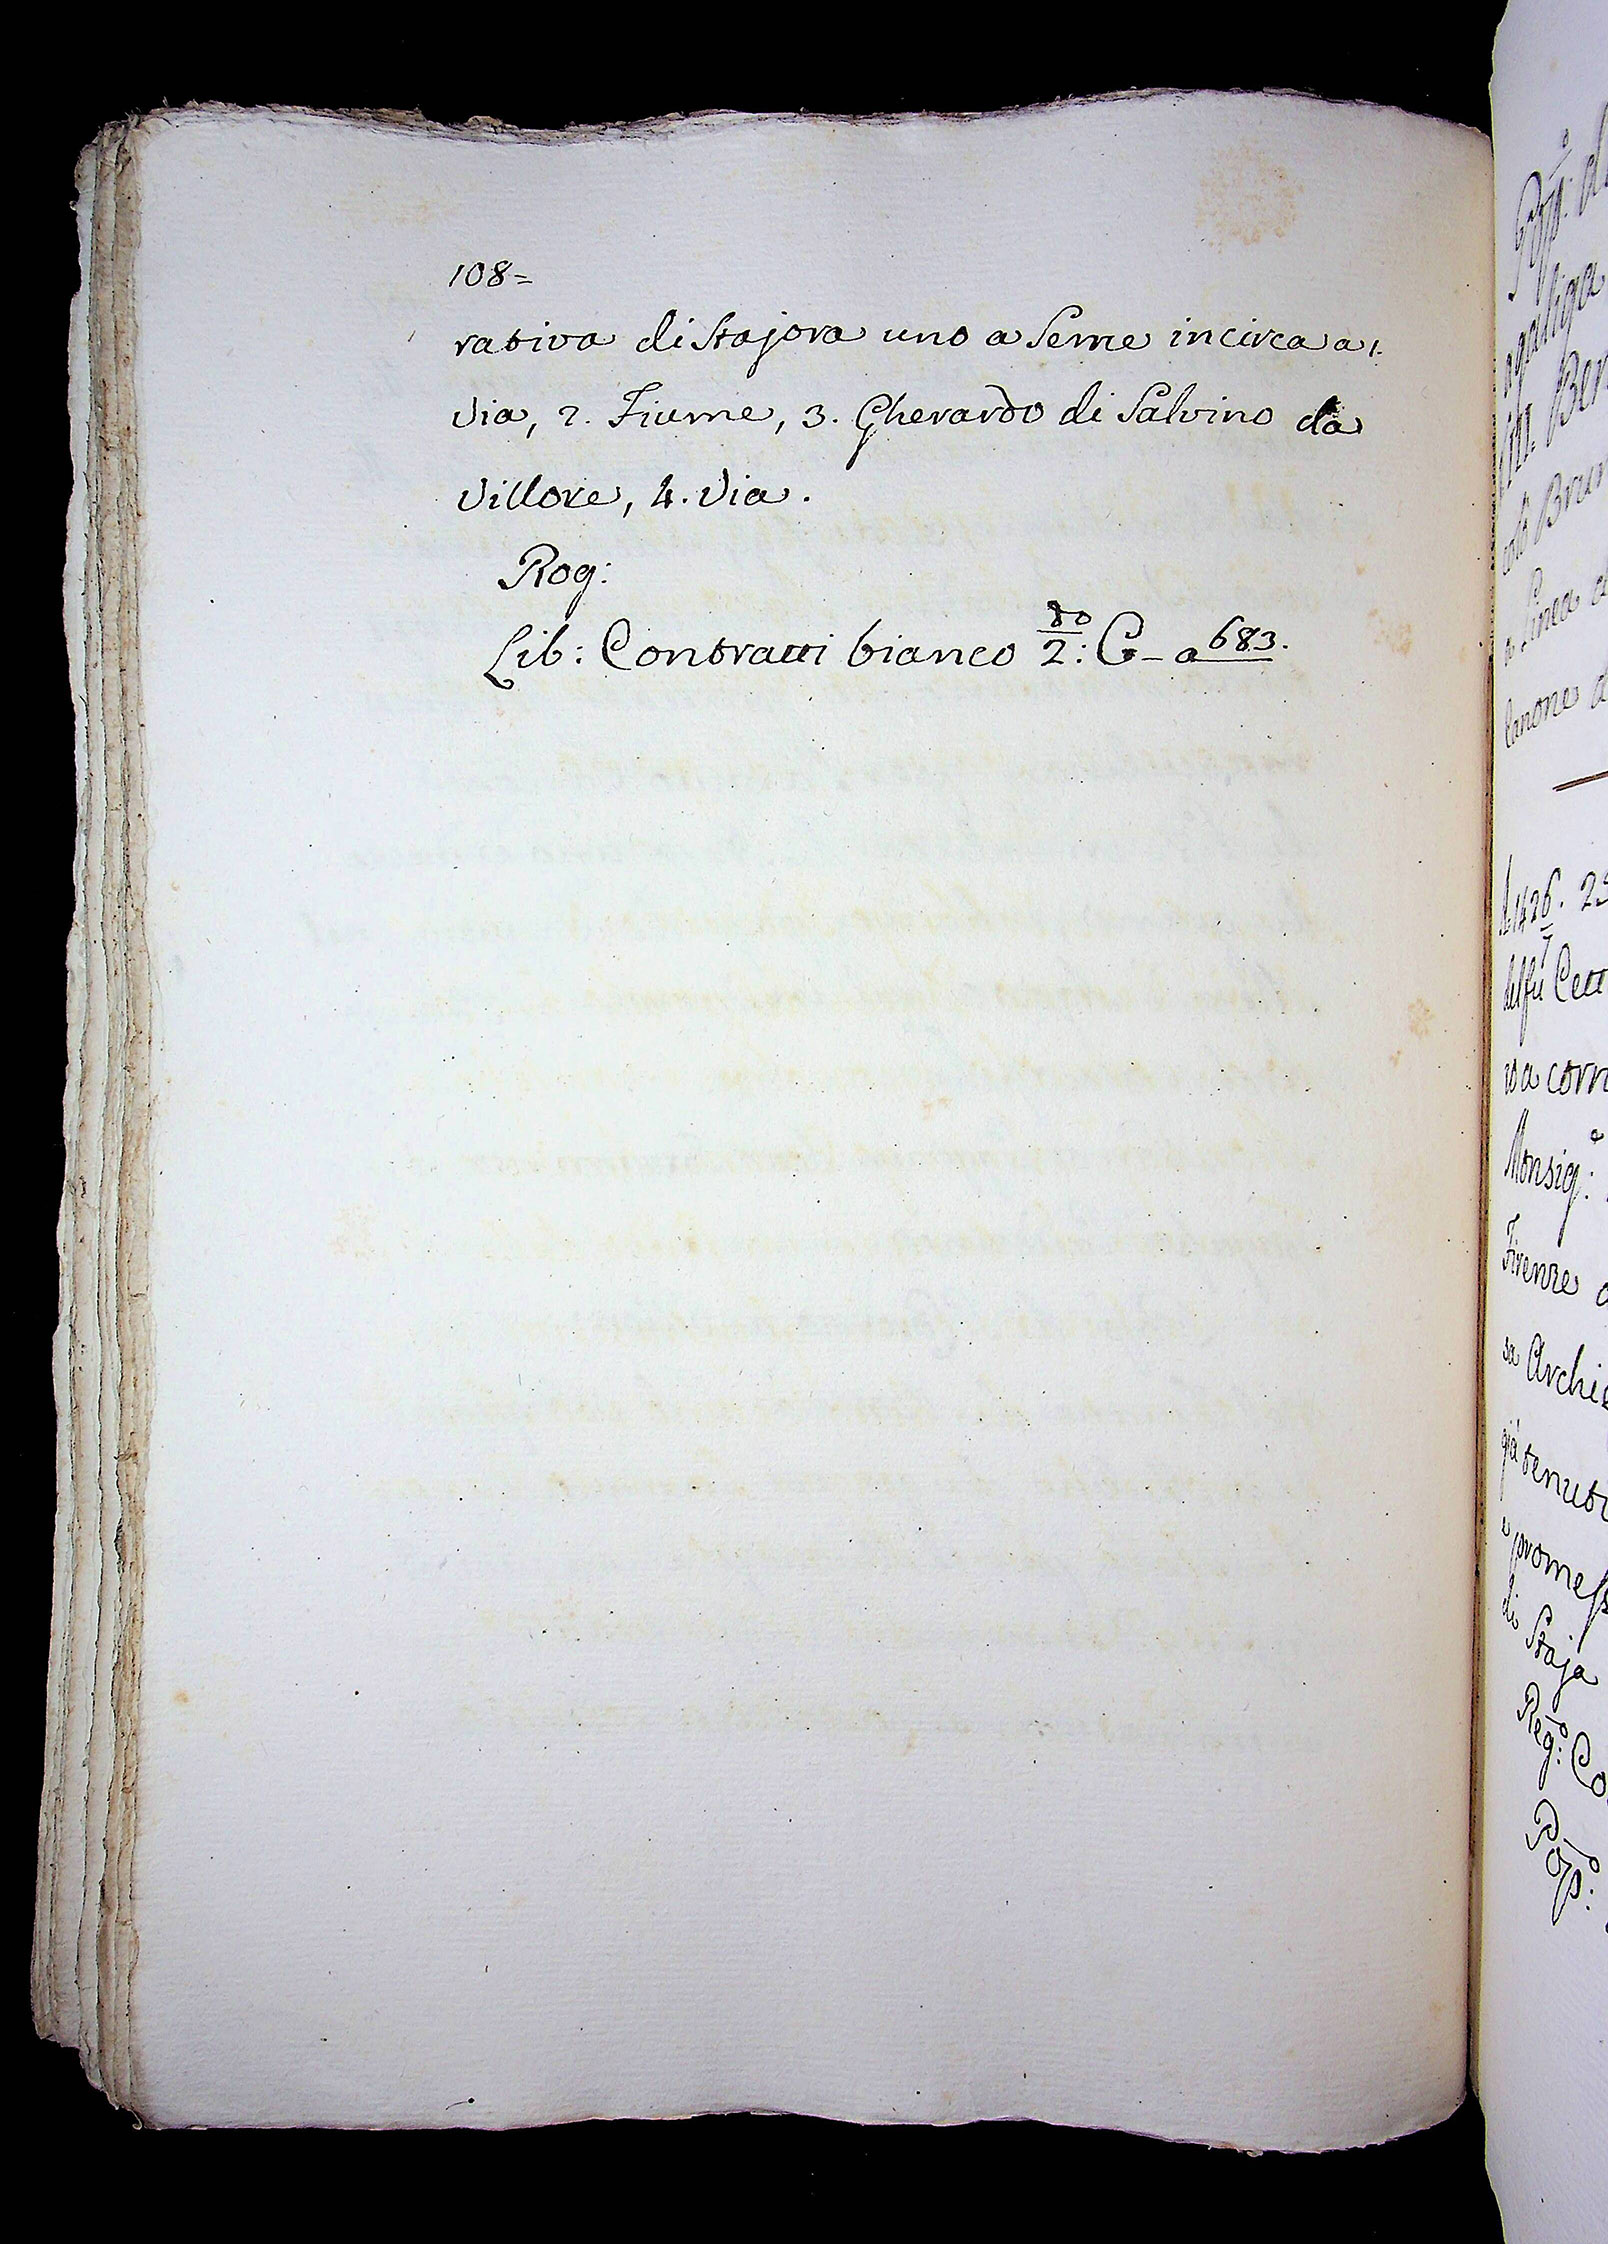 108=
rativa di Stajora uno a Seme incirca a 1.
Via, 2. Fiume, 3. Gherardo di Salvino da
Villore, 4. Via.
Rog:
Lib: Contratti bianco 2: C- a 683.
Pop:
Ber
Brun
a Linea
Canone d
A 1426. 25
7
del fù Cecc
Monsig:e
Firenze
sa Archi
già tenuti
e promess
di Staja
Reg:o Co
Pop:o